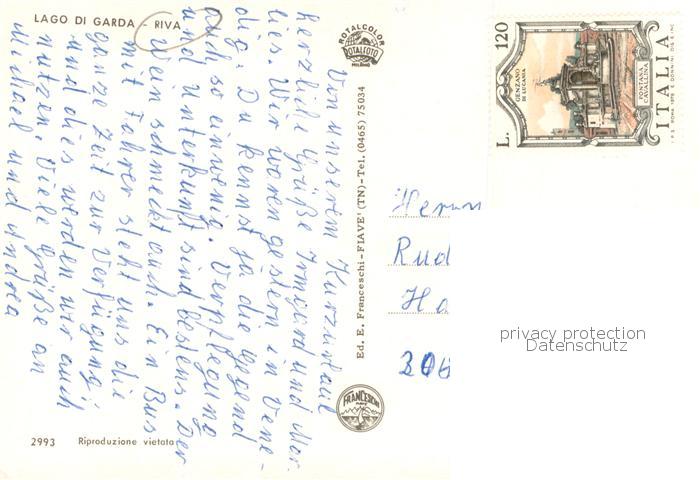 LAGO DI GARDA - RIVA
Von unserem Kurzurlaub
herzliche Grüße Irmgard und Mar-
lies. Wir waren gestern in Vene-
dig. Du kennst ja die Gegend
auch so einwenig. Verpflegung
und Unterkunft sind bestens. Der
Wein schmeckt auch. Ein Bus
mit Fahrer steht uns die
ganze Zeit zur Verfügung
und dies werden wir auch
nutzen. Viele Grüße an
Michael und Andrea
2993 Riproduzione vietata
ROTALCOLOR
ROTALFOTO
MILANO
Ed. E. Franceschi - FIAVE' (TN) - Tel. (0465) 75034
FRANCESCHI
L. 120
GENZANO
DI LUCANIA
FONTANA
CAVALLINA
ITALIA
Herrn
Rud
Ha
306
privacy protection
Datenschutz